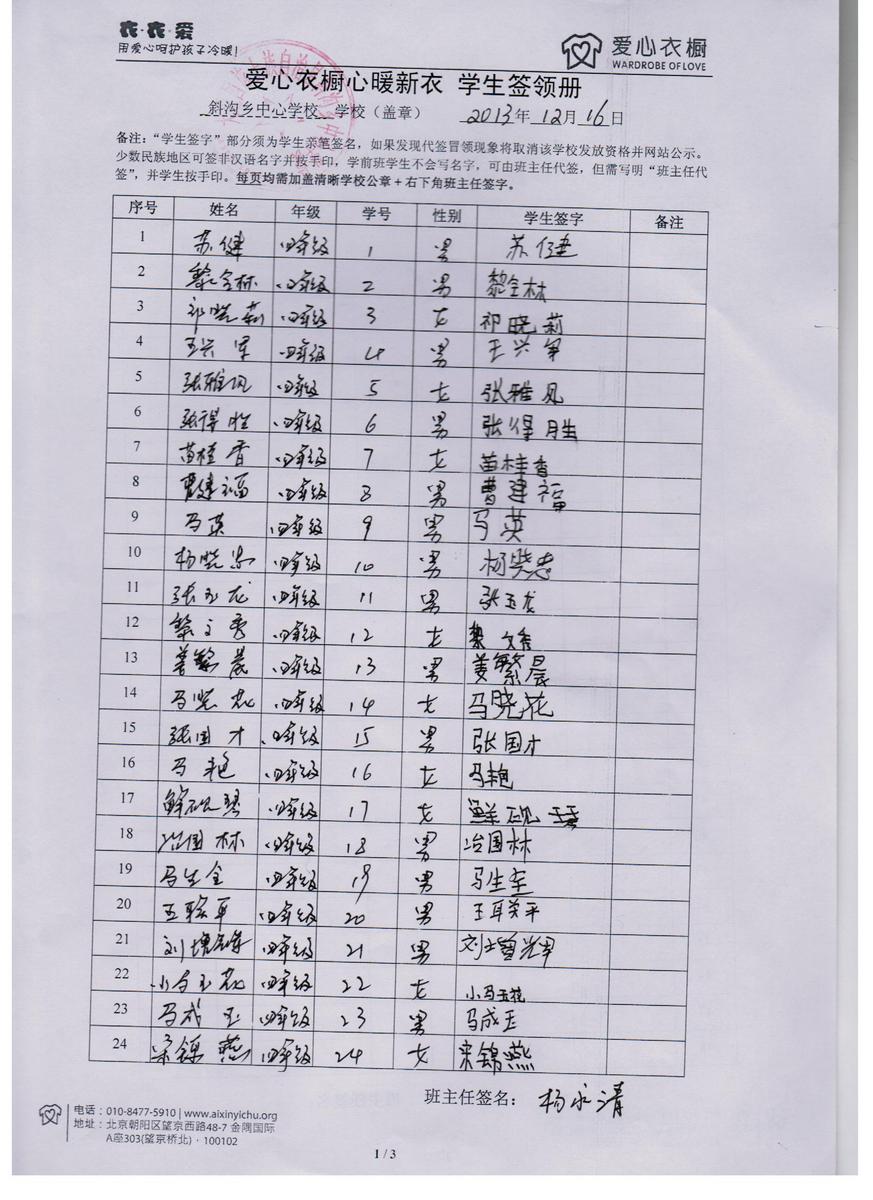 衣·衣·爱
用爱心呵护孩子冷暖!
爱心衣橱
WARDROBE OF LOVE
爱心衣橱心暖新衣 学生签领册
斜沟乡中心学校 学校（盖章） 2013年 12月 16日
备注：“学生签字”部分须为学生亲笔签名，如果发现代签冒领现象将取消该学校发放资格并网站公示。
少数民族地区可签非汉语名字并按手印，学前班学生不会写名字，可由班主任代签，但需写明“班主任代
签”，并学生按手印。每页均需加盖清晰学校公章+右下角班主任签字。
序号 姓名 年级 学号 性别 学生签字 备注
1 苏健 四年级 1 男 苏健
2 黎全林 四年级 2 男 黎全林
3 祁晓莉 四年级 3 女 祁晓莉
4 王兴军 四年级 4 男 王兴军
5 张雅凤 四年级 5 女 张雅凤
6 张得胜 四年级 6 男 张得胜
7 苗桂香 四年级 7 女 苗桂香
8 曹建福 四年级 8 男 曹建福
9 马英 四年级 9 男 马英
10 杨晓忠 四年级 10 男 杨晓忠
11 张玉龙 四年级 11 男 张玉龙
12 黎文秀 四年级 12 女 黎文秀
13 姜繁晨 四年级 13 男 姜繁晨
14 马晓花 四年级 14 女 马晓花
15 张国才 四年级 15 男 张国才
16 马艳 四年级 16 女 马艳
17 鲜砚琴 四年级 17 女 鲜砚琴
18 冶国林 四年级 18 男 冶国林
19 马生全 四年级 19 男 马生全
20 王联平 四年级 20 男 王联平
21 刘增辉 四年级 21 男 刘增辉
22 小马玉花 四年级 22 女 小马玉花
23 马成玉 四年级 23 男 马成玉
24 宋锦燕 四年级 24 女 宋锦燕
班主任签名： 杨永清
电话：010-8477-5910 | www.aixinyichu.org
地址：北京朝阳区望京西路48-7 金隅国际
A座303(望京桥北)·100102
1 / 3